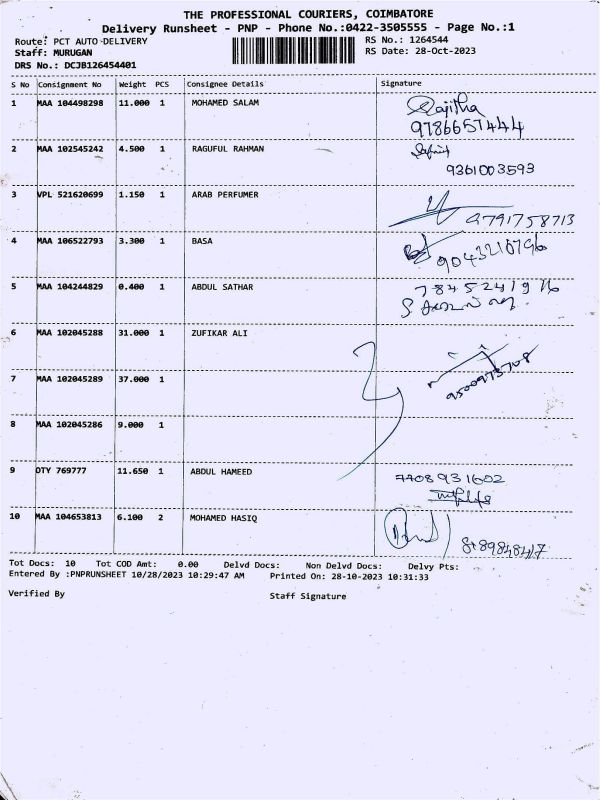 THE PROFESSIONAL COURIERS, COIMBATORE
Delivery Runsheet - PNP - Phone No.:0422-3505555 - Page No.:1
Route: PCT AUTO DELIVERY RS No.: 1264544
Staff: MURUGAN RS Date: 28-Oct-2023
DRS No.: DCJB126454401
S No Consignment No Weight PCS Consignee Details Signature
1 MAA 104498298 11.000 1 MOHAMED SALAM Rajitha
9786657444
2 MAA 102545242 4.500 1 RAGUFUL RAHMAN
9361003593
3 VPL 521620699 1.150 1 ARAB PERFUMER
9791758713
4 MAA 106522793 3.300 1 BASA
9043210796
5 MAA 104244829 0.400 1 ABDUL SATHAR 7845241916
6 MAA 102045288 31.000 1 ZUFIKAR ALI
9500973708
7 MAA 102045289 37.000 1
8 MAA 102045286 9.000 1
9 DTY 769777 11.650 1 ABDUL HAMEED 7708931602
10 MAA 104653813 6.100 2 MOHAMED HASIQ
Tot Docs: 10 Tot COD Amt: 0.00 Delvd Docs: Non Delvd Docs: Delvy Pts:
Entered By :PNPRUNSHEET 10/28/2023 10:29:47 AM Printed On: 28-10-2023 10:31:33
Verified By Staff Signature